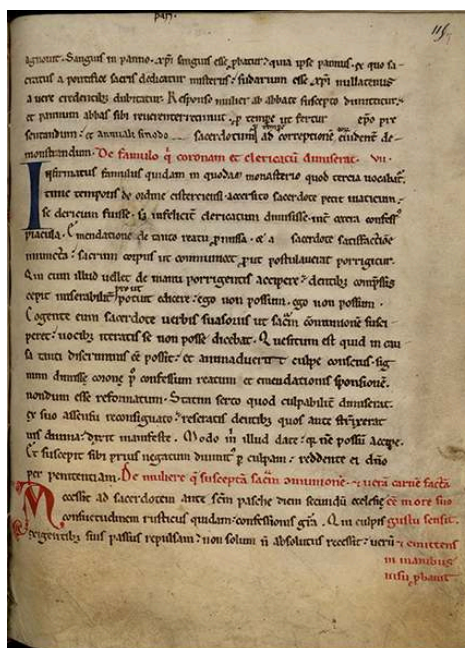 115
agnouit. Sanguis in panno. xp̄i sanguis esse ꝓbatur: quia ipse pannus. ex quo sa-
cratus a pontifice sacris dedicatur misteriis: sudarium esse xp̄i nullatenus
a uere credentibus dubitatur. Responso mulier ab abbate suscepto dimittitur.
et pannum abbas sibi reuerenter retinuit. ꝓ tempe ut fertur ep̄o pre
sentandum: et annuali sinodo sacerdotum ad correptionē euident̄ de-
monstrandum. De famulo q̄ coronam et clericatū amiserat. vii.
Infirmatus famulus quidam in quodā monasterio quod tercia uocabat̄.
time temporis de ordine cisterciensi accersito sacerdote petit uiaticum.
se clericum fuisse. s; infelicit̄ clericatum amisisse. int̄ cetera confess᾽
piacula. Emendatione de tanto reatu ꝓmissa. & a sacerdote satisfactiōe
iniuncta: sacrum corpus ut communicet ꝓut postulauerat porrigitur.
Qui cum illud uellet de manu porrigentis accipere: dentibus cōmpssis
cepit miserabilit̄ prout potuit edicere: ego non possum. ego non possum.
Cogente eum sacerdote uerbis suasoriis ut sacrā communionē susci-
peret: uocibus iteratis se non posse dicebat. Quesitum est quid in cau
sa tanti discriminis eē possit: et animaduertit culpe conscius. sig
num amisse corone p̄ confessum reatum et emendationis sponsionē.
nondum esse reformatum. Statim serto quod culpabilit̄ amiserat.
ex suo assensu reconsignato: reseratis dentibus quos ante strinxerat
uis diuina: dixit manifeste. Modo m̄ illud date: q; nē possū accipe.
Et suscepit sibi prius negatum diuinit̄ ꝓ culpam: reddente ei dn̄o
per penitentiam. De muliere q̄ suscepta sacrā cōmunionē. & uerā carnē factā
eē more suo
Accessit ad sacerdotem ante scm̄ pasche diem secundū ecclesie
consuetudinem rusticus quidam: confessionis gr̄a. Qui in culpis gustu sensit.
exigentibus suis passus repulsam: non solum n̄ absolutus recessit: uerū & emittens
in manibus
uisu ꝓbauit